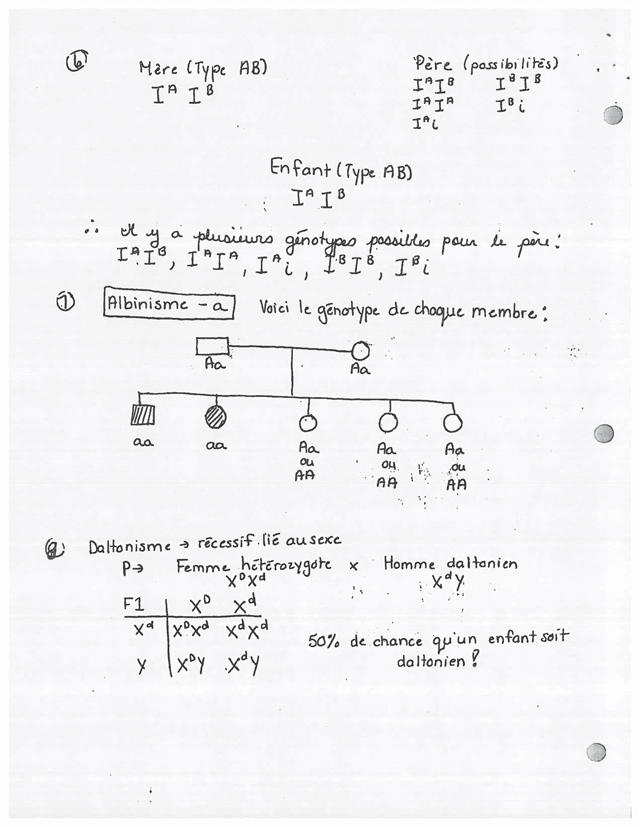 6 Mère (Type AB) Père (possibilités)
I^A I^B I^A I^B I^B I^B
I^A I^A I^B i
I^A i
Enfant (Type AB)
I^A I^B
∴ Il y a plusieurs génotypes possibles pour le père:
I^A I^B, I^A I^A, I^A i, I^B I^B, I^B i
7 Albinisme - a Voici le génotype de chaque membre:
Aa Aa
aa aa Aa Aa Aa
ou ou ou
AA AA AA
Daltonisme → récessif lié au sexe
P→ Femme hétérozygote x Homme daltonien
X^D X^d X^d Y
F1 X^D X^d
X^d X^D X^d X^d X^d 50% de chance qu'un enfant soit
Y X^D Y X^d Y daltonien!